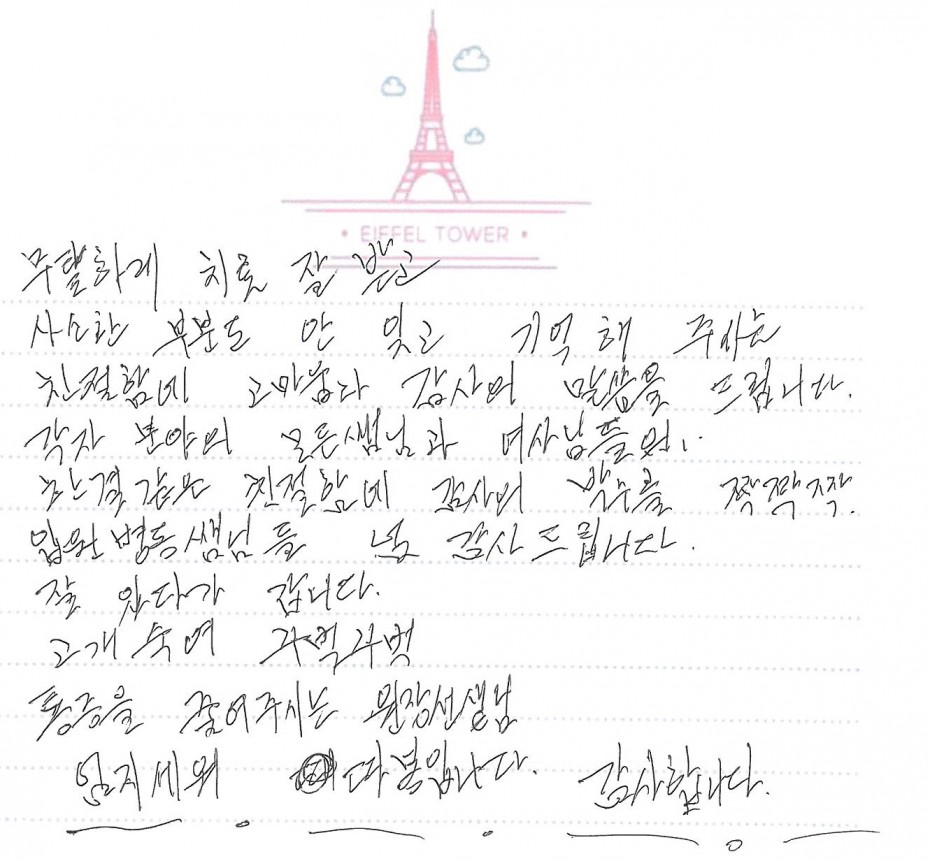 • EIFFEL TOWER •
무탈하게 치료 잘 받고
사소한 부분도 안 잊고 기억해 주시는
친절함에 고마웁다 감사의 말씀을 드립니다.
각자 분야의 모든샘님과 여사님들의..
한결같은 친절함에 감사의 박수를 짝짝짝.
입원병동쌤님들 넘 감사드립니다.
잘 있다가 갑니다.
고개숙여 꾸벅꾸벅
통증을 줄여주시는 원장선생님
엄지세워 따봉입니다. 감사합니다.